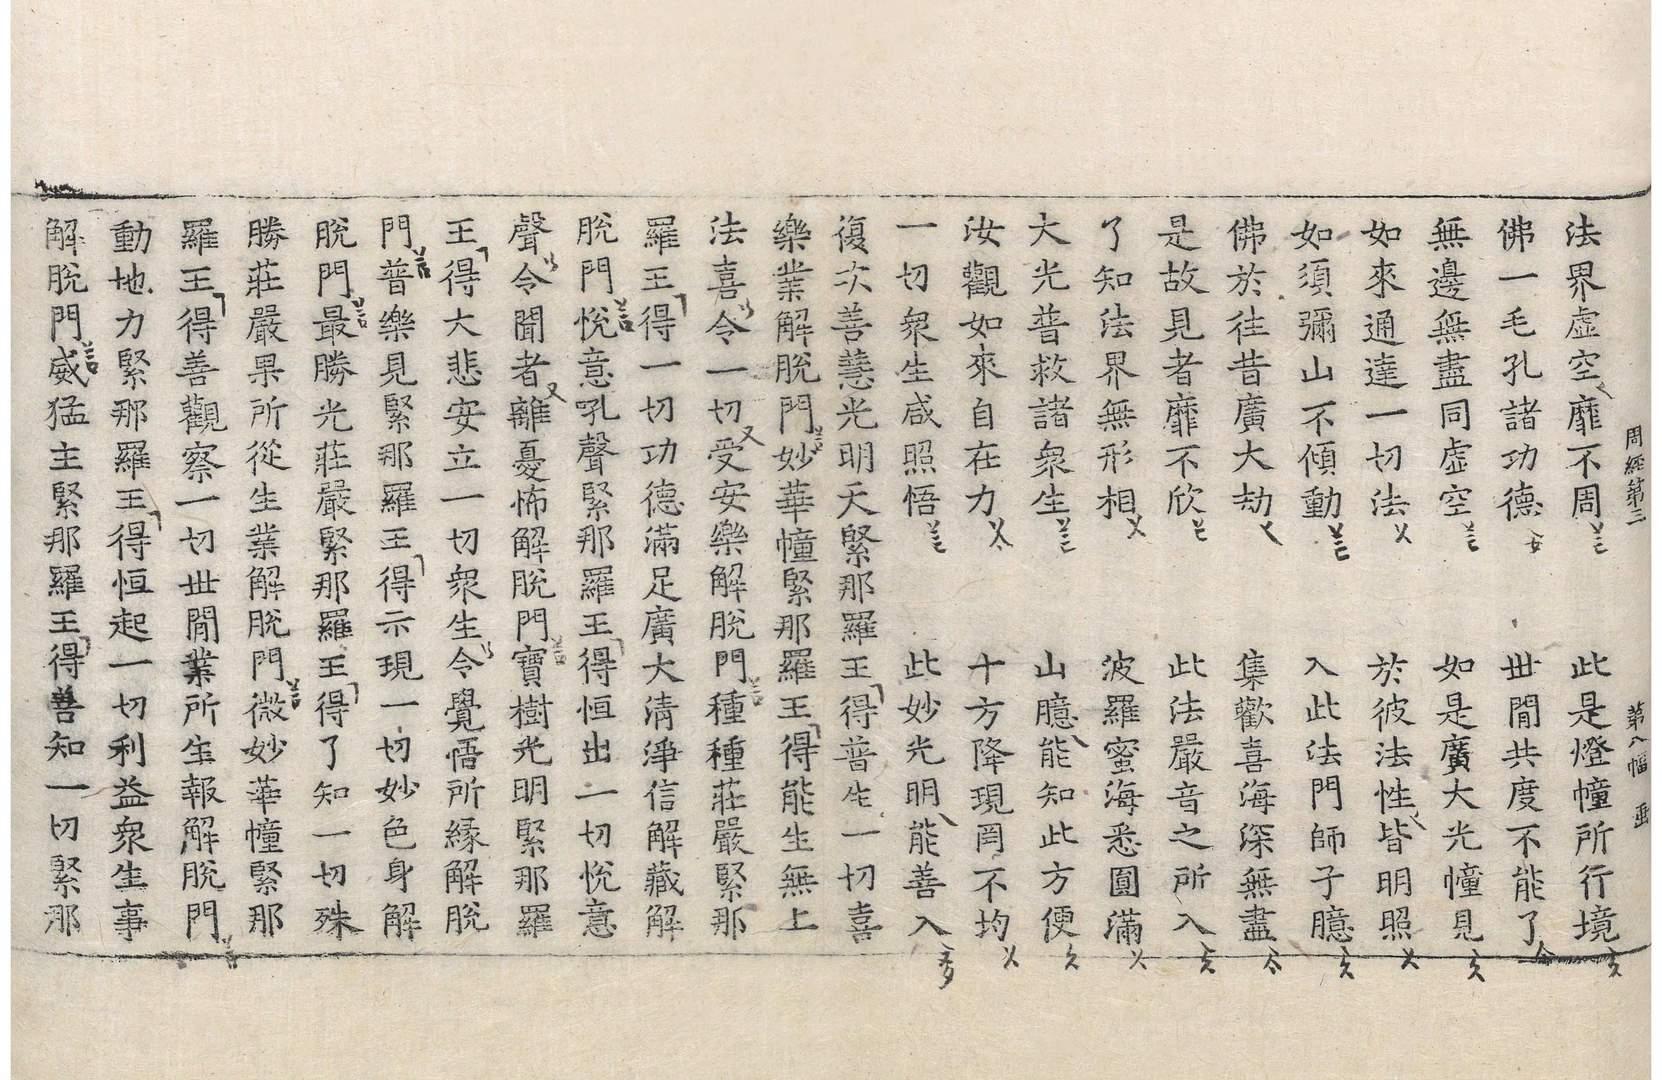 周經第三　第八幅
法界虛空靡不周　此是燈幢所行境
佛一毛孔諸功德　世間共度不能了
無邊無盡同虛空　如是廣大光幢見
如來通達一切法　於彼法性皆明照
如須彌山不傾動　入此法門師子臆
佛於往昔廣大劫　集歡喜海深無盡
是故見者靡不欣　此法嚴音之所入
了知法界無形相　波羅蜜海悉圓滿
大光普救諸眾生　山臆能知此方便
汝觀如來自在力　十方降現罔不均
一切眾生咸照悟　此妙光明能善入
復次善慧光明天緊那羅王得普生一切喜
樂業解脫門妙華幢緊那羅王得能生無上
法喜令一切受安樂解脫門種種莊嚴緊那
羅王得一切功德滿足廣大清淨信解藏解
脫門悅意吼聲緊那羅王得恒出一切悅意
聲令聞者離憂怖解脫門寶樹光明緊那羅
王得大悲安立一切眾生令覺悟所緣解脫
門普樂見緊那羅王得示現一切妙色身解
脫門最勝光莊嚴緊那羅王得了知一切殊
勝莊嚴果所從生業解脫門微妙華幢緊那
羅王得善觀察一切世間業所生報解脫門
動地力緊那羅王得恒起一切利益眾生事
解脫門威猛主緊那羅王得善知一切緊那